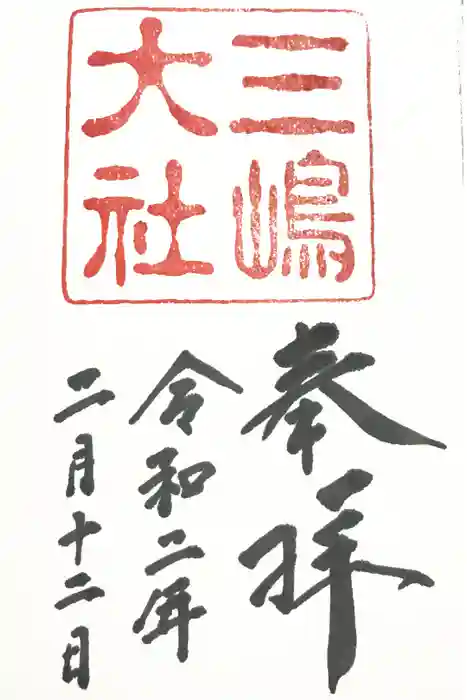 三嶋
大社
奉拝
令和二年
二月十二日